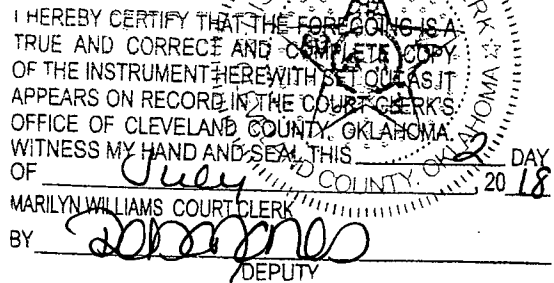 I HEREBY CERTIFY THAT THE FOREGOING IS A
TRUE AND CORRECT AND COMPLETE COPY
OF THE INSTRUMENT HEREWITH SET OUT AS IT
APPEARS ON RECORD IN THE COURT CLERK'S
OFFICE OF CLEVELAND COUNTY, OKLAHOMA.
WITNESS MY HAND AND SEAL THIS 2 DAY
OF July 20 18
MARILYN WILLIAMS COURT CLERK
BY
DEPUTY
COUNTY, OKLAHOMA